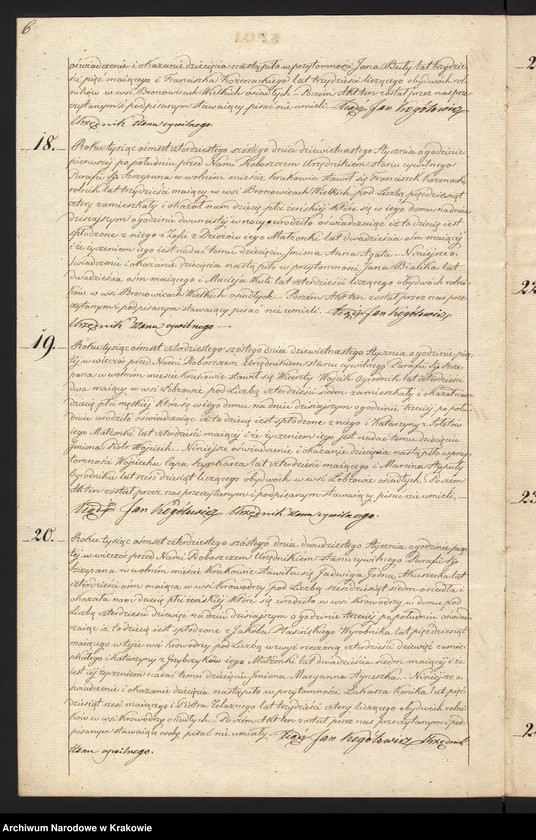 6
oświadczenie i okazanie dziecięcia nastąpiło w przytomności Jana Buły lat trzydzie-
ści pięć maiącego i Franciszka Kozenackiego lat trzydzieści liczącego obydwóch rol-
ników w wsi Bronowicach Wielkich osiadłych. Poczem Akt ten został przez nas prze-
czytanym i podpisanym stawaiący pisać nie umieli. Xiądz Jan
Urzędnik stanu cywilnego.
18. Roku tysiąc ośmset czterdziestego szóstego dnia dziewietnastego Stycznia o godzinie
pierwszej po południu przed Nami Proboszczem Urzędnikiem stanu cywilnego
Parafii Sgo Szczepana w wolném mieście Krakowie stawił się Franciszek Kozenacki
rolnik lat trzydzieści maiący w wsi Bronowicach Wielkich pod Liczbą pięćdziesiąt
cztery zamieszkały i okazał nam dziecię płci żeńskiej które się w jego domu na dniu
dzisiajszym o godzinie dwunastej w nocy urodziło oświadczając iż to dziecię jest
spłodzone z niego i Zofii z Dziorów jego Małżonki lat dwadzieścia ośm maiącej
i że życzeniem jego jest nadać temu dziecięciu Imiona Anna Agata. Niniejsze o-
świadczenie i okazanie dziecięcia nastąpiło w przytomności Jana Bialika lat
dwadzieścia ośm maiącego i Macieja Kuli lat czterdzieści liczącego obydwóch rolni-
ków w wsi Bronowicach Wielkich osiadłych. Poczem Akt ten został przez nas prze-
czytanym i podpisanym stawaiący pisać nie umieli. Xiądz Jan
Urzędnik stanu cywilnego
19. Roku tysiąc ośmset czterdziestego szóstego dnia dziewietnastego Stycznia o godzinie pią-
tej w wieczór przed Nami Proboszczem Urzędnikiem stanu cywilnego Parafii Sgo Szcze-
pana w wolném mieście Krakowie stawił się Wincenty Wójcik Ogrodnik lat czterdzieści
dwa maiący w wsi Łobzowie pod Liczbą czterdzieści siedm zamieszkały i okazał nam
dziecię płci męskiej które się w jego domu na dniu dzisiajszym o godzinie trzeciej po połu-
dniu urodziło oświadczając iż to dziecię jest spłodzone z niego i Katarzyny z
jego Małżonki lat czterdzieści maiącej i że życzeniem jego jest nadać temu dziecięciu
Imiona Piotr Wojciech. Niniejsze oświadczenie i okazanie dziecięcia nastąpiło w przy-
tomności Wojciecha Capa Szynkarza lat czterdzieści maiącego i Marcina
Ogrodnika lat sześćdziesiąt liczącego obydwóch w wsi Łobzowie osiadłych. Poczem
Akt ten został przez nas przeczytanym i podpisanym stawaiący pisać nie umieli.
Xiądz Jan Urzędnik stanu cywilnego.
20. Roku tysiąc ośmset czterdziestego szóstego dnia dwudziestego Stycznia o godzinie pią-
tej w wieczór przed Nami Proboszczem Urzędnikiem stanu cywilnego Parafii Sgo
Szczepana w wolném mieście Krakowie stawiła się Jadwiga Akuszerka lat
czterdzieści ośm maiąca w wsi Krowodrzy pod Liczbą sześćdziesiąt siedm osiadła i
okazała nam dziecię płci żeńskiej które się urodziło w wsi Krowodrzy w domu pod
Liczbą czterdzieści dziewięć na dniu dzisiajszym o godzinie trzeciej po południu oświad-
czając iż to dziecię jest spłodzone z Jakoba Ptasińskiego Wyrobnika lat pięćdziesiąt
maiącego w tejże wsi Krowodrzy pod Liczbą wyżej rzeczoną czterdzieści dziewięć zamie-
szkałego i Katarzyny z Grzybczyków jego Małżonki lat dwadzieścia siedm maiącej i że
jest jej życzeniem nadać temu dziecięciu Imiona Maryanna Agnieszka. Niniejsze o-
świadczenie i okazanie dziecięcia nastąpiło w przytomności Łukasza Konika lat pięć-
dziesiąt sześć maiącego i Piotra Żelaznego lat trzydzieści cztery liczącego obydwóch rolni-
ków w wsi Krowodrzy osiadłych. Poczem Akt ten został przez nas przeczytanym i pod-
pisanym stawaiąca osoby pisać nie umiały. Xiądz Jan Urzędnik
stanu cywilnego.
Archiwum Narodowe w Krakowie